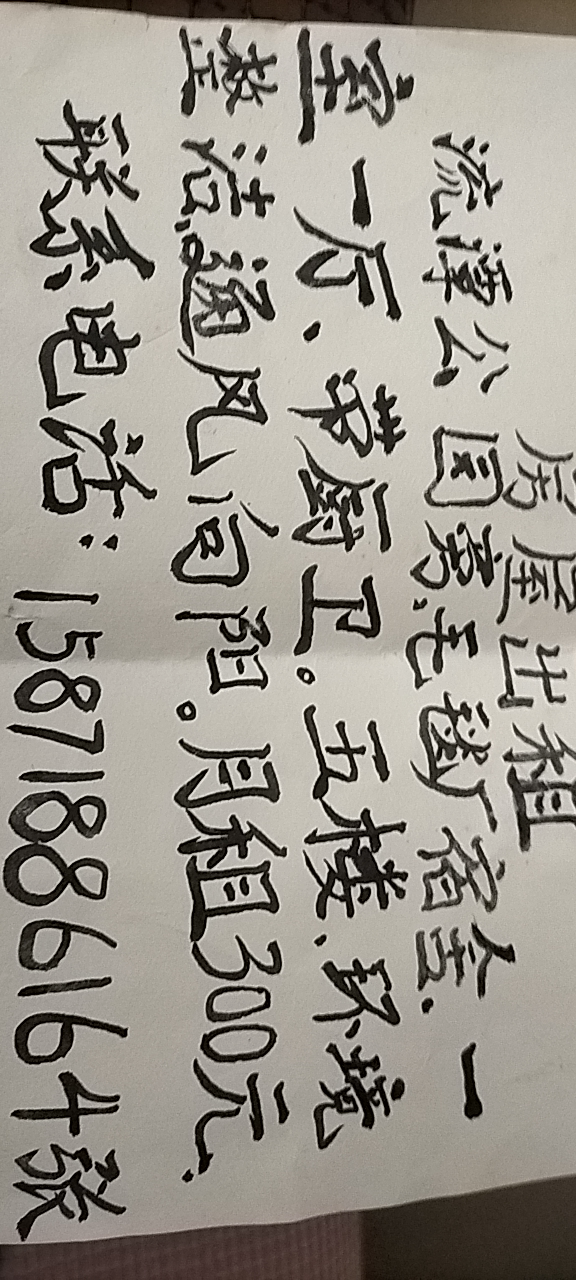 房屋出租
流潭公园旁毛毯厂宿舍.一
室一厅、带厨卫。五楼.环境
整洁通风向阳。月租300元.
联系电话：15871886164张